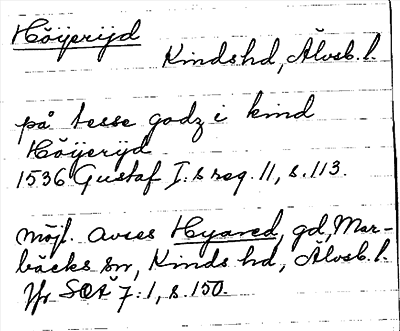 Höijerijd
Kinds hd, Älvsb. l.
på tesse godz i kind
Höijeryd
1536 Gustaf I:s reg. 11, s. 113.
möjl. avses Hyared, gd, Mar-
bäcks sn, Kinds hd, Älvsb. l.
Jfr SOÄ 7:1, s. 150.